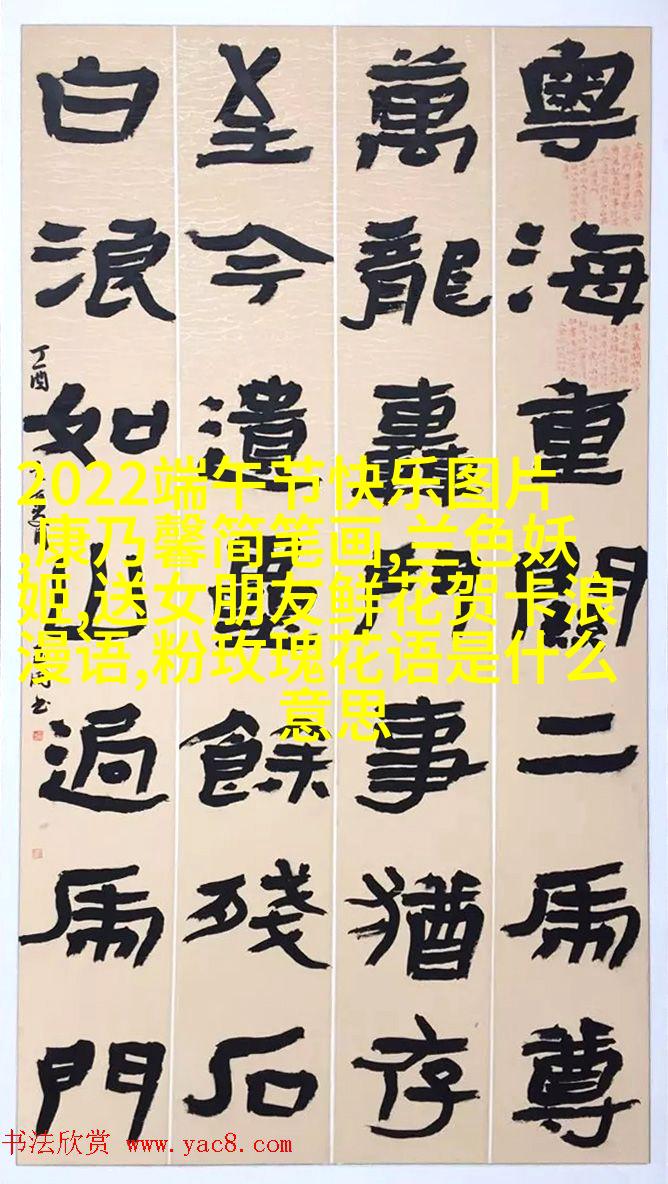 粤海重關二虎尊
萬龍轟鬥事猶存
至今遺壘餘殘石
白浪如山過虎門
丁酉
书
2022端午节快乐图片
,康乃馨简笔画,兰色妖
姬,送女朋友鲜花贺卡浪
漫语,粉玫瑰花语是什么
意思
书法欣赏 www.yac8.com